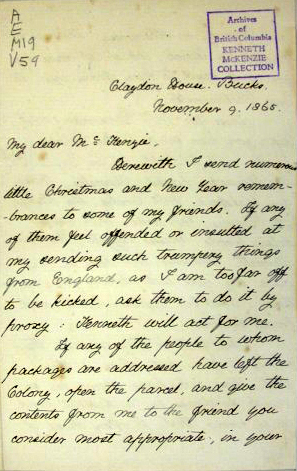 A
E
M19
V54
Archives
of
British Columbia
KENNETH
McKENZIE
COLLECTION
Claydon House. Bucks.
November 9. 1865.
My dear Mc Kenzie,
Herewith I send numerous
little Christmas and New Year remem-
-brances to some of my friends. If any
of them feel offended or insulted at
my sending such trumpery things
from England, as I am too far off
to be kicked, ask them to do it by
proxy: Kenneth will act for me.
If any of the people to whom
packages are addressed have left the
Colony, open the parcel, and give the
contents from me to the friend you
consider most appropriate, in your